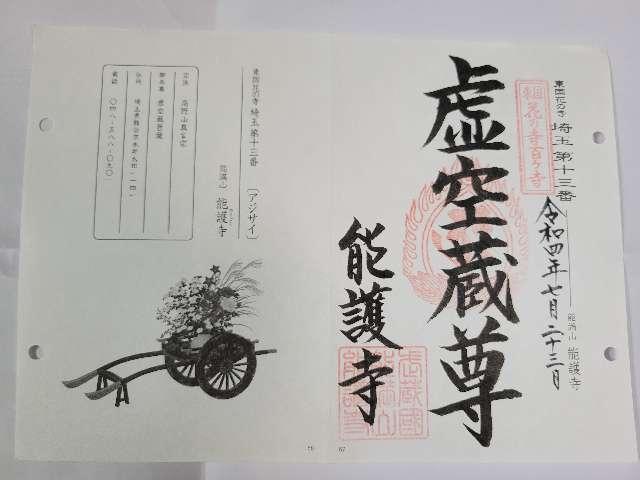 東国花の寺 埼玉第十三番
能満山 能護寺
令和四年七月二十三日
東国花の寺百ケ寺
虚空蔵尊
能護寺
東国花の寺 埼玉第十三番 〔アジサイ〕
能満山 能護寺
宗派 高野山真言宗
御本尊 虚空蔵菩薩
67